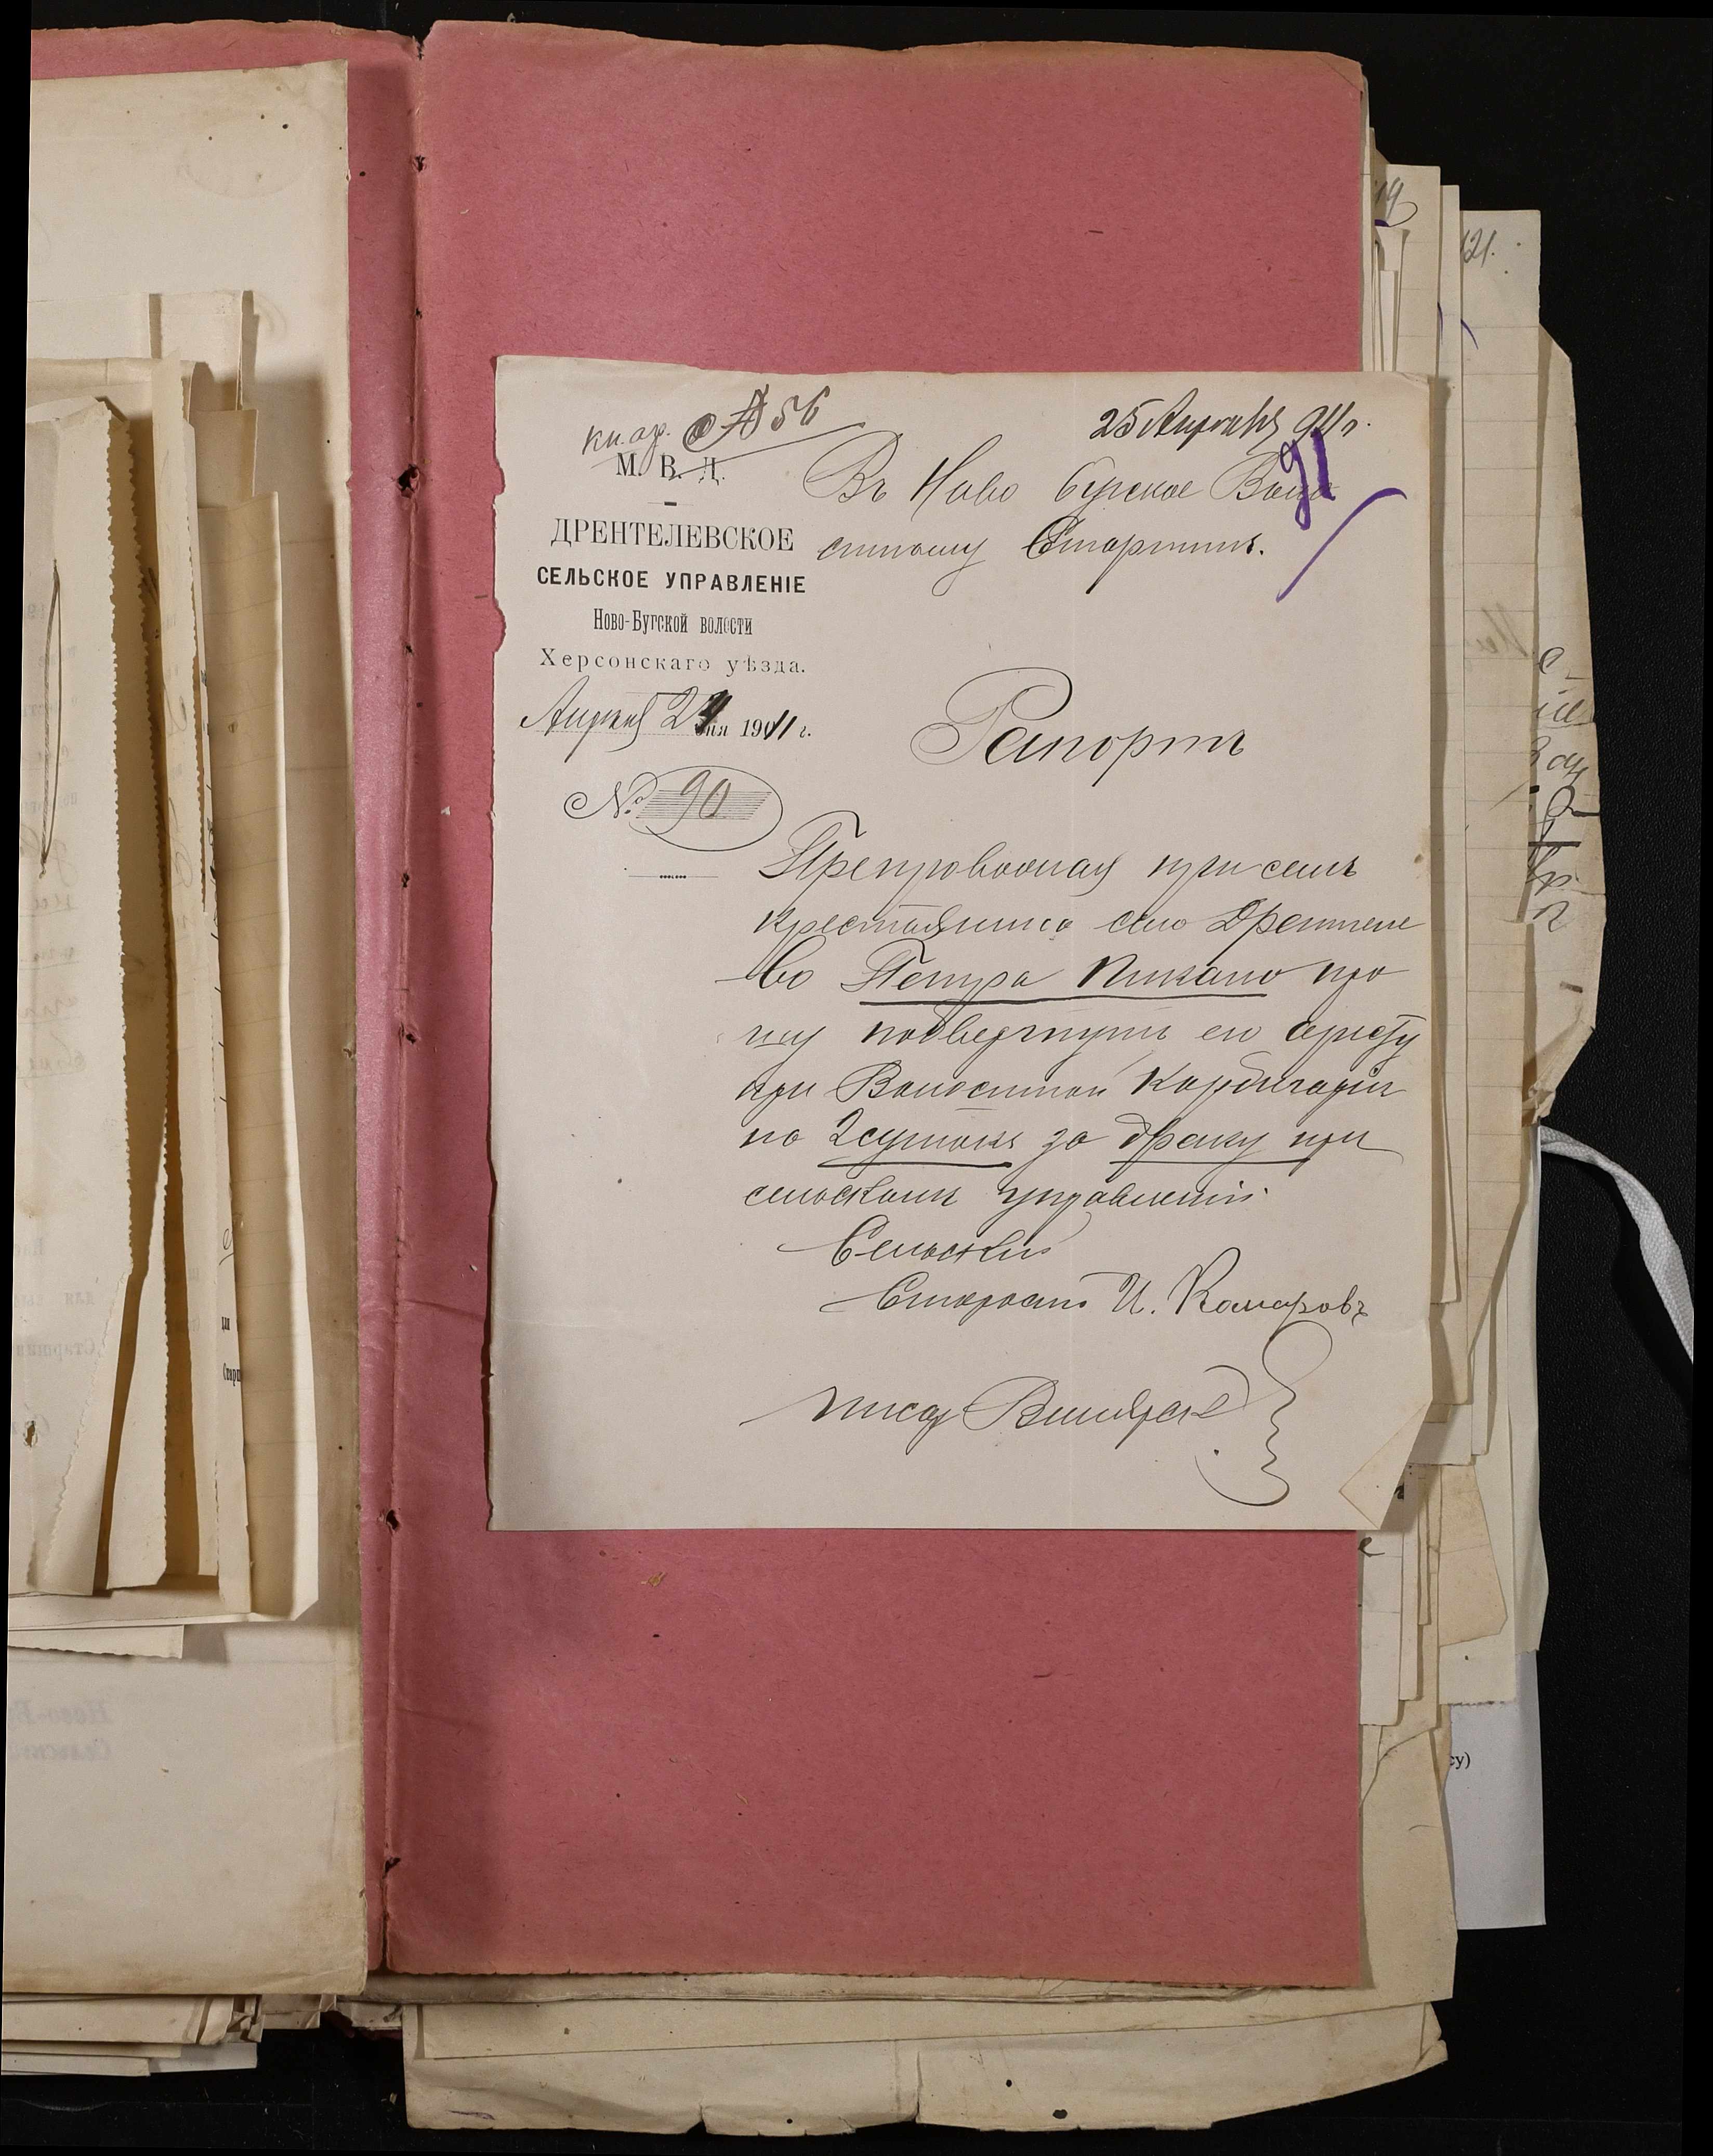 кн. ар. № 56
25 Апреля 911 г.
91
М. В. Д.
ДРЕНТЕЛЕВСКОЕ
СЕЛЬСКОЕ УПРАВЛЕНІЕ
Ново-Бугской волости
Херсонскаго уѣзда.
Апреля 24 дня 1911 г.
№ 90
Въ Ново Бугское Воло
стному Старшинѣ.
Рапортъ
Препровождая при семъ
крестьянина села Дрентеле
во Петра
про
шу подвергнуть его аресту
при Волостной Кордигаріи
на 2 сутокъ за драку при
сельскомъ управленіи.
Сельскій
Староста И. Комаровъ
писар
19
121.
су)